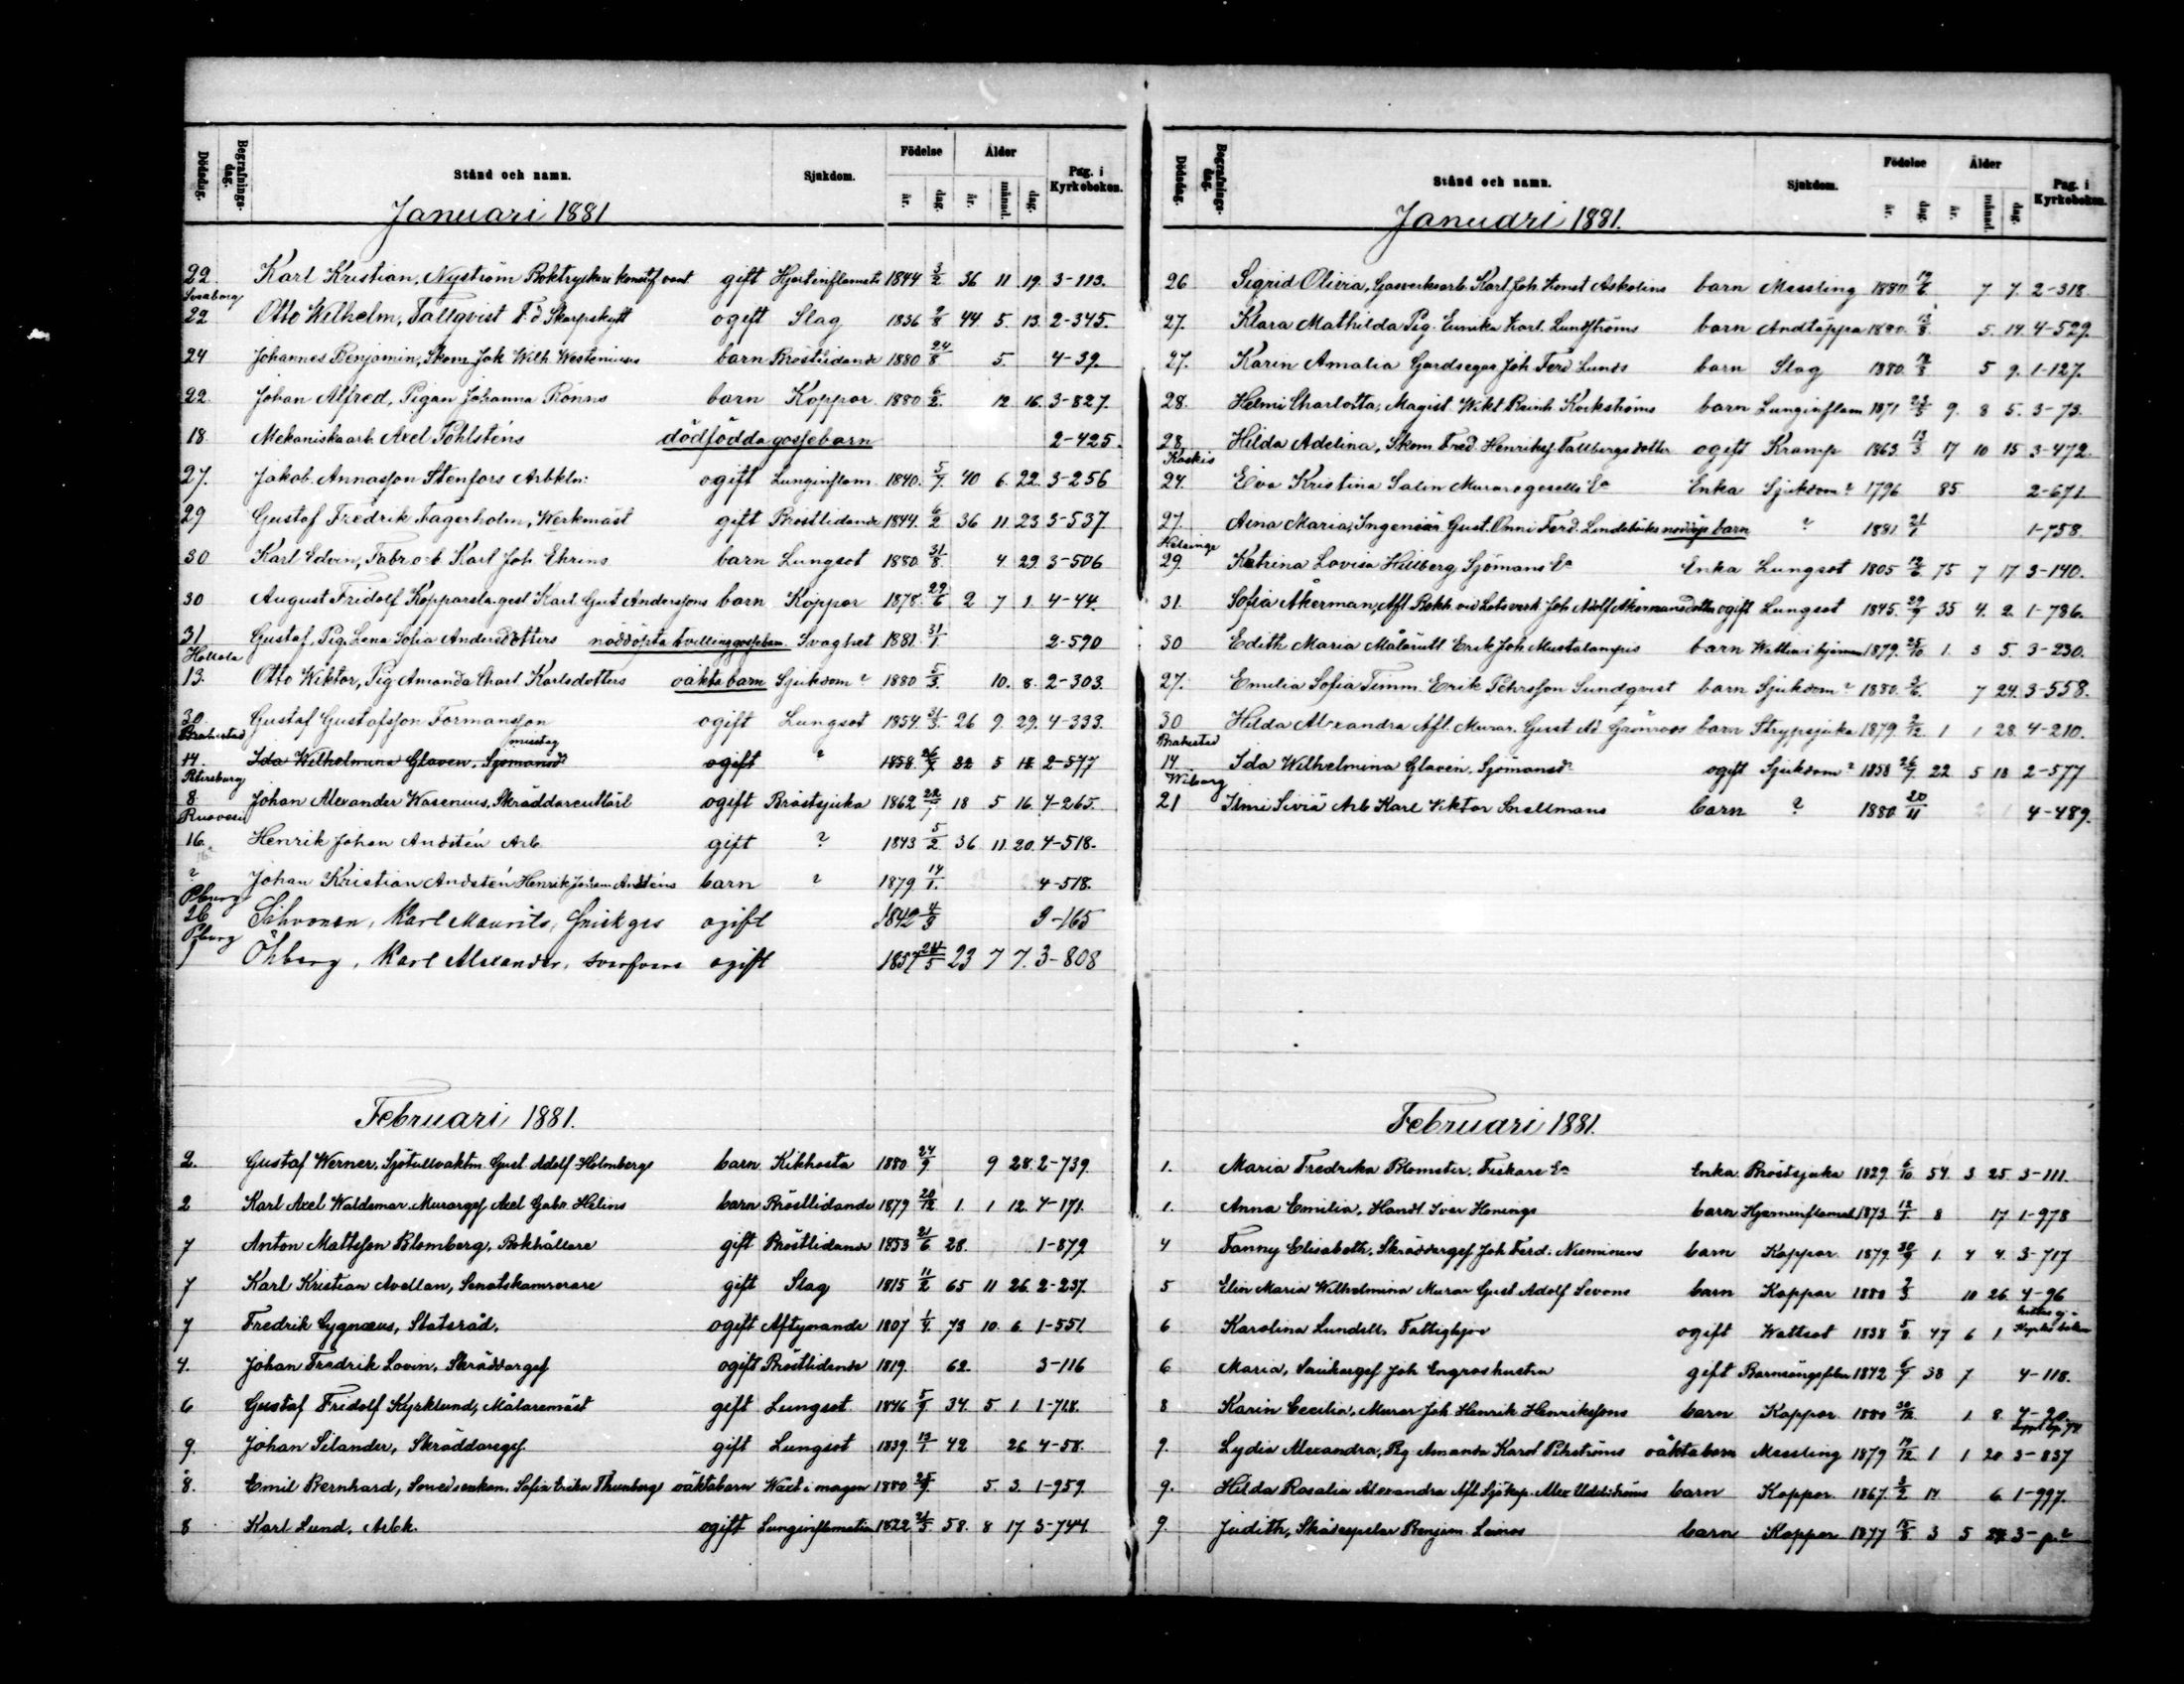 Dödsdag. Begrafnings-dag. Stånd och namn. Sjukdom. Födelse år. dag. Ålder år. månad. dag. Pag. i Kyrkoboken.
Januari 1881
22. Karl Kristian Nyström Boktryckare gift 1844 3/2 36 11 19. 3-113.
Sveaborg
22 Otto Wilhelm, Tallqvist F.d Skarpskytt ogift Slag 1836 9/8 44. 5. 13. 2-345.
24 Johannes Benjamin, Skom. Joh. Wilh. Westenius barn Bröstlidande 1880 24/8 5. 4-39.
22. Johan Alfred, Pigan Johanna Rönns barn Koppor 1880. 6/2. 12 16. 3-827.
18. Mekaniskaarb. Axel Pohlsténs dödfödda gossebarn 2-425.
27. Jakob Annasson Stenfors Arbkln: ogift Lunginflam. 1840. 5/7 40 6. 22. 3-256
29 Gustaf Fredrik Fagerholm, Werkmäst gift Bröstlidande 1844. 6/2 36 11. 23 3-537.
30 Karl Edvin, Karl Joh. Ehrins barn Lungsot 1880. 31/8. 4. 29. 3-506
30 August Fridolf Kopparsla. gesl Karl Gust Anderssons barn Koppor 1878. 29/6 2 7 1. 4-44.
31 Gustaf, Pig. Lena Sofia Andersdotters nöddöpta tvillinggossebarn. Svaghet 1881. 31/1. 2-590
Hollola
13. Otto Wiktor, Pig. Amanda Charl. Karlsdotters oäktabarn Sjukdom? 1880 5/3. 10. 8. 2-303.
30. Gustaf Gustafsson Formansson ogift Lungsot 1854. 31/3. 26 9. 29. 4-333.
Brahestad misstag
14. Ida Wilhelmina Glaven, Sjömansdr ogift ? 1858. 26/7. 22 5 18 2-577
Petersburg
8. Johan Alexander Wasenius, Skräddare ogift Bröstsjuka 1862 22/7 18 5 16. 4-265.
Ruovesi
16. Henrik Johan Andstén Arb gift ? 1843 5/2 36 11. 20. 4-518.
? Johan Kristian Andstén Henrik Johan Andténs barn ? 1879 14/1. 4-518.
Pburg
26 Sihvonen, Karl Maurits, ogift 1842 4/9 3-165
Pburg
1 Öhberg, Karl Alexander, ogift 1857 24/5 23 7 7. 3-808
Februari 1881.
2. Gustaf Werner, Sjötullvaktm. Gust. Adolf Holmbergs barn Kikhosta 1880. 24/9. 9 28. 2-739.
2 Karl Axel Waldemar. Murargs Axel Gabr. Helins barn Bröstlidande 1879 20/12. 1. 1 12. 4-171.
7 Anton Mattsson Blomberg, Bokhållare gift Bröstlidande 1853 21/6 28. 1-879.
7 Karl Kristian Avellan, Senatskamrerare gift Slag 1815 11/2 65 11 26. 2-237.
7 Fredrik Cygnæus, Statsråd, ogift Aftynande 1807 1/4. 73 10. 6. 1-551.
4. Johan Fredrik Lovin, Skräddargs ogift Bröstlidande 1819. 62. 3-116
6 Gustaf Fridolf Kyrklund, Målaremäst gift Lungsot 1846 5/9. 34. 5. 1. 1-718.
9. Johan Silander, Skräddaregs. gift Lungsot 1839. 13/1. 42 26. 4-58.
8. Emil Bernhard, Smedsenkan. Sofia Erika Thunbergs oäktabarn Wäxt i magen 1880. 25/9. 5. 3. 1-959.
8 Karl Lund, Arbk. ogift Lunginflamation 1822 21/5. 58. 8 17. 3-744.
Dödsdag. Begrafnings-dag. Stånd och namn. Sjukdom. Födelse år. dag. Ålder år. månad. dag. Pag. i Kyrkoboken.
Januari 1881.
26 Sigrid Olivia, Gasverksarb. Karl Joh. Konst Askolins barn Messling 1880. 19/6. 7 7. 2-318.
27. Klara Mathilda Pig. Eurika Karl. Lundströms barn Andtäppa 1880. 13/8. 5. 14. 4-529.
27. Karin Amalia Gardsegar Joh. Ferd Lunds barn Slag 1880. 5 9. 1-127.
28. Helmi Charlotta, Magist. Wikt. Reinh. barn Lunginflam 1871 23/5 9. 8 5. 3-73.
28. Hilda Adelina, Skom. Fred. Henrikss. Tallbergs dotter ogift Kramp 1863. 13/3 17 10 15 3-472.
Kaskis
24. Eva Kristina Salin Muraregesells Ea Enka Sjukdom? 1796 85. 2-671.
27. Aina Maria, Ingeniör Gust. Onni Ferd. Lindebäcks nöddöpt barn ? 1881. 21/1 1-758.
Helsinge
29 Katrina Lovisa Hillberg Sjömans Ea Enka Lungsot 1805 12/6. 75 7 17 3-140.
31. Sofia Åkerman, Afl. Bokh. vid Lotsverk. Joh. Adolf Åkermansdotter ogift Lungsot 1845. 29/9 35 4. 2. 1-786.
30 Edith Maria Målarutl. Erik Joh. Mustalampis barn Watten i hjernan 1879. 25/10 1. 3 5. 3-230.
27. Emilia Sofia Timm. Erik Pehrsson Sundqvist barn Sjukdom? 1880. 3/6. 7 24. 3-558.
30 Hilda Alexandra Afl. Murar. Gust Ad Grönroos barn Strypsjuka 1879. 2/12. 1 1 28. 4-210.
Brahestad
14 Ida Wilhelmina Glavén, Sjömansdr ogift Sjukdom? 1858 26/7 22 5 18 2-577
Wiborg
21 Ilmi Siviä Arb Karl Viktor Snellmans barn ? 1880 20/11 4-489.
Februari 1881.
1. Maria Fredrika Blomster, Fiskare Ea Enka Bröstsjuka 1829. 6/10 54. 3 25. 3-111.
1. Anna Emilia, Handl. Ivar Honings barn 1873. 8 17 1-978
4 Fanny Elisabeth, Skräddargs Joh. Ferd. Nieminens barn Koppor 1879. 30/9 1. 4 4. 3-717
5 Elin Maria Wilhelmina Murar Gust Adolf Sevons barn Koppor 1880 10 26. 4-96
6 Karolina Lundell, Fattighjon ogift Wattsot 1838 5/8 47 6 1
6. Maria, Joh. Engroshustru gift 1842 6/7 38 7 4-118.
8 Karin Cecilia, Murar Joh. Henrik Henrikssons barn Koppor 1880 30/12. 1. 8.
9. Lydia Alexandra, Pig Amanda Karol. oäktabarn Messling 1879 19/12 1 1 20 3-837
9. Hilda Rosalia Alexandra Afl. Sjökap. Alex barn Koppor. 1867. 3/2 14 6 1-997.
9. Judith, Skådespelar Benjam. Leinos barn Koppor 1877 15/8 3 5 3-p?